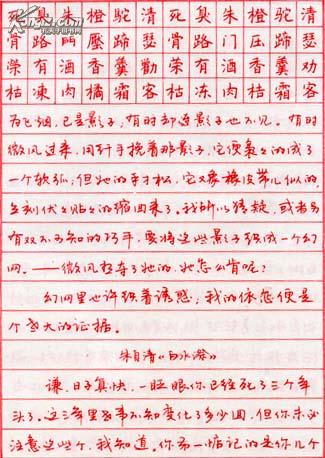 死臭朱橙駝清死臭朱橙驼清
骨路門壓蹄瑟骨路门压蹄瑟
榮有酒香羹勸荣有酒香羹劝
枯凍肉橘霜客枯冻肉桔霜客
为飞烟,已是影子;有时却连影子也不见。有时
微风过来,用纤手挽着那影子,它便袅々的成了
一个软弧;但她的手才松,它又象橡皮带儿似的,
立刻伏々贴々的缩回来了。我所以猜疑,或者另
有双不可知的巧手,要将这些影子织成一个幻
网。——微风想夺了她的,她怎么肯呢?
幻网里也许织着诱惑,我的依恋便是
个老大的证据。
朱自清《白水漈》
谦,日子真快,一眨眼你已经死了三个年
头了。这三年里世事不知变化了多少回,但你未必
注意这些个,我知道。你第一惦记的是你几个